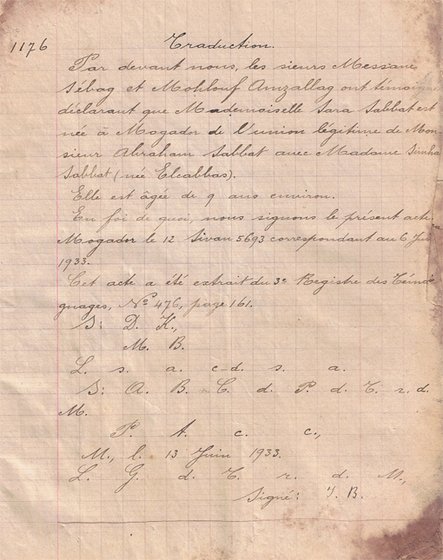 1176 Traduction.
Par devant nous, les sieurs Messane
Sebag et Mohlouf Amzallag ont témoign
déclarant que Mademoiselle Sara Sabbat est
née à Mogador de l'union légitime de Mon
sieur Abraham Sabbat avec Madame Simha
Sabbat (née Elcabbas).
Elle est âgée de 9 ans environ.
En foi de quoi, nous signons le présent acte.
Mogador le 12 Sivan 5693 correspondant au 6 Jui
1933.
Cet acte a été extrait du 3e Registre des Témoi
gnages, No 476, page 161.
S: D. K.,
M. B.
L. s. a. c-d. s. a.
S: A. B. C. d. P. d. T. r. d.
M.
P. A. c. c.,
M., l. 13 Juin 1933.
L. G. d. T. r. d. M.,
Signé: J. B.